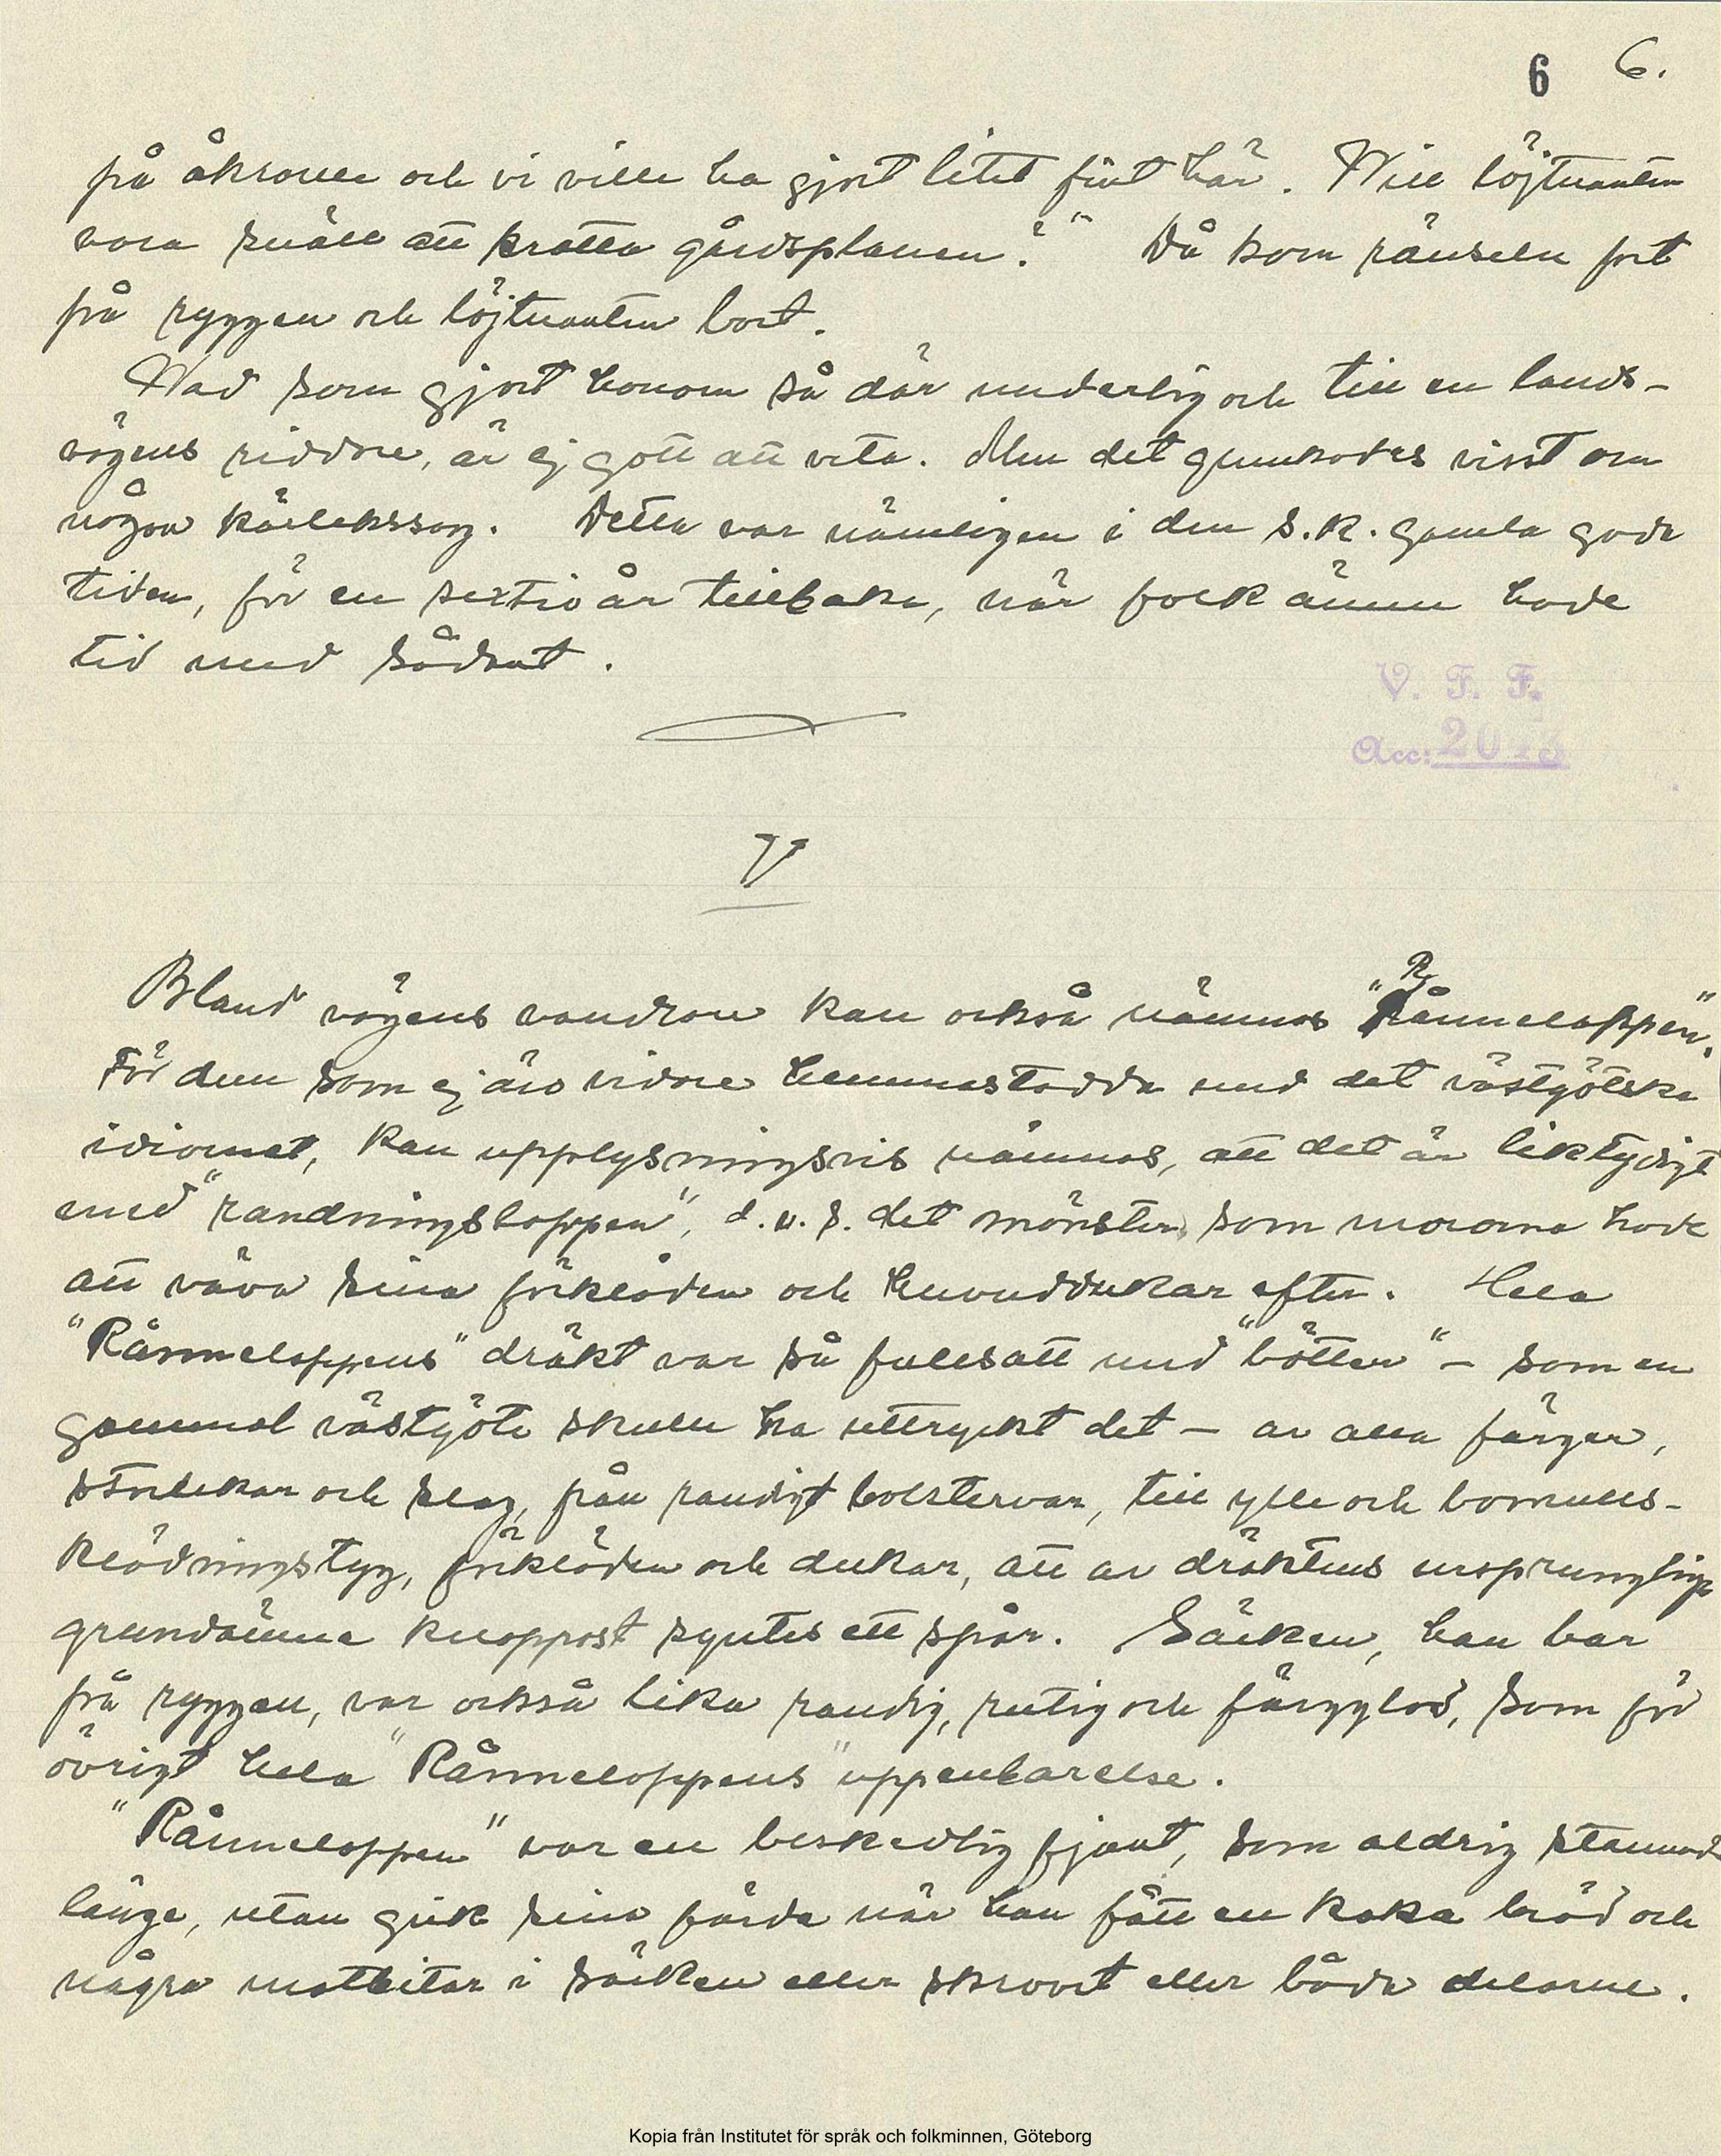 6 6.
på åkrarne och vi ville ha gjort litet fint här. Will löjtnanten
vara snäll att kratta gårdsplanen?" Då kom ränseln fort
på ryggen och löjtnanten bort.
Wad som gjort honom så där underlig och till en lands-
vägens riddare, är ej gott att veta. Men det gnunkades visst om
någon kärlekssorg. Detta var nämligen i den s.k. gamla goda
tiden, för en sextio år tillbaka, när folk ännu hade
tid med sådant.
V. F. F.
Acc:
V
Bland vägens vandrare kan också nämnas "Rånneloppen".
För dem som ej äro vidare hemmastadda med det västgötska
idiomet, kan upplysningsvis nämnas, att det är liktydigt
med "randningsloppen", d.v.s. det mönster, som mororna hade
att väva sina förkläden och huvuddukar efter. Hela
"Rånneloppens" dräkt var så fullsatt med "bötter" – som en
gammal västgöte skulle ha uttryckt det – av alla färger,
storlekar och slag, från randigt bolstervar, till ylle och bomulls-
klädningstyg, förkläden och dukar, att av dräktens ursprungliga
grundämne knappast syntes ett spår. Säcken, han bar
på ryggen, var också lika randig, rutig och färgglad, som för
övrigt hela "Rånneloppens" uppenbarelse.
"Rånneloppen" var en beskedlig fjant, som aldrig stannade
länge, utan gick sina färde när han fått en kaka bröd och
några matbitar i säcken eller skrovet eller båda delarne.
Kopia från Institutet för språk och folkminnen, Göteborg